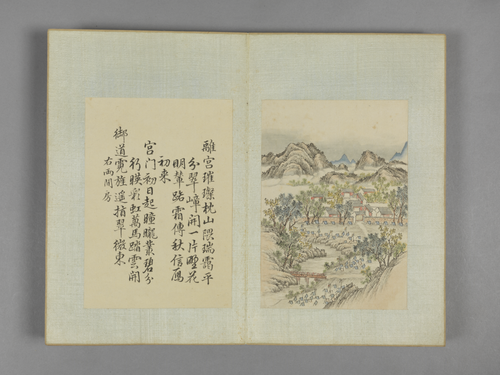 離宮璀璨枕山隈瑞靄平
分翠嶂開一片野花
明輦路霜傳秋信雁
初來
宮門初日起曈曨叢碧分
暎彩虹萬馬踏雲開
御道霓旌遙指翠微東
右兩間房